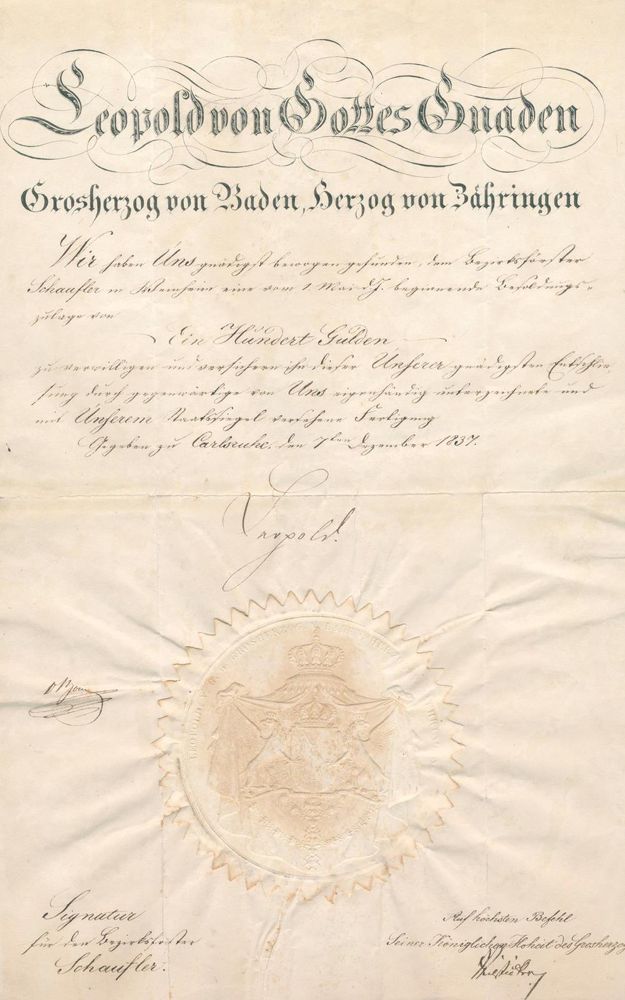 Leopold von Gottes Gnaden
Grosherzog von Baden, Herzog von Zähringen
Wir haben Uns gnädigst bewogen gefunden, dem Bezirksförster
Schaufler in Weinheim eine vom 1 Mai d.J. beginnende Besoldungs-
zulage von
Ein Hundert Gulden
zu verwilligen und versichern ihn dieser Unserer gnädigsten Entschlie-
ßung durch gegenwärtige von Uns eigenhändig unterzeichnete und
mit Unserem Staatssiegel versehene Fertigung
Gegeben zu Carlsruhe, den 7ten Dezember 1837.
Leopold.
Signatur
für den Bezirksförster
Schaufler.
Auf höchsten Befehl
Seiner Königlichen Hoheit des Grosherzogs